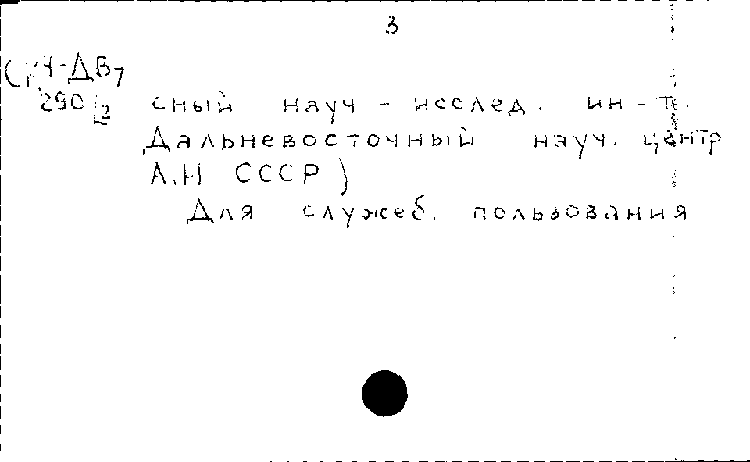 3
ДВ7
290
сный науч-исслед. ин-т.
Дальневосточный науч. центр
А.Н СССР)
Для служеб. пользования